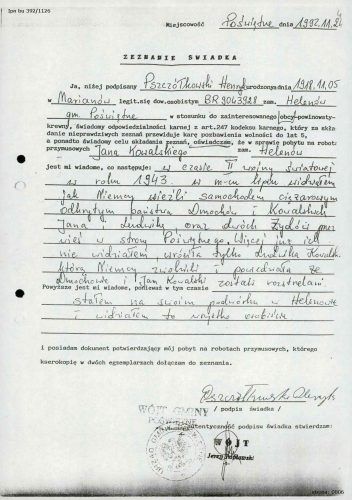 Ipn bu 392/1126
Miejscowość Poświętne dnia 1992.11.2
ZEZNANIE ŚWIADKA
Ja, niżej podpisany Pszczółkowski Henryk urodzony dnia 1918.11.05
w Marianów legit.się dow.osobistym BR 9043928 zam. Helenów
gm. Poświętne w stosunku do zainteresowanego obcy-powinowaty-
krewny, świadomy odpowiedzialności karnej z art.247 kodeksu karnego, który za skła
danie nieprawdziwych zeznań przewiduje karę pozbawienia wolności do lat 5,
a ponadto świadomy celu składanie zeznań, oświadczam, że w sprawie pobytu na robot
przymusowych Jana Kowalskiego zam. Helenów
jest mi wiadome, co następuje: w czasie II wojny światowej
w roku 1943 w m-cu lipcu widziałem
jak Niemcy wieźli samochodem ciężarowym
odkrytym państwa Dmochów i Kowalskich
Jana i Ludwikę oraz dwóch Żydów przez
wieś w stronę Poświętnego. Więcej już ich
nie widziałem wróciła tylko Ludwika Kowalsk.
którą Niemcy zwolnili i powiedziała że
Dmochowie i Jan Kowalski zostali rozstrzelani
Powyższe jest mi wiadome, ponieważ w tym czasie
stałem na swoim podwórku w Helenowie
i widziałem to wszystko osobiście
i posiadam dokument potwierdzający mój pobyt na robotach przymusowych, którego
kserokopię w dwóch egzemplarzach dołączam do zeznania.
Pszczółkowski Henryk
/ podpis świadka /
WÓJT GMINY
POŚWIĘTNE
autentyczność podpisu świadka stwierdzam:
WÓJT
Jerzy